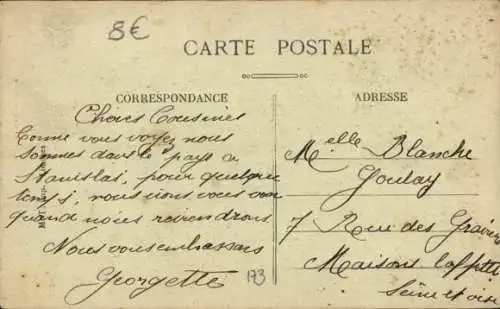 8€
CARTE POSTALE
CORRESPONDANCE
Chères Cousines
Comme vous voyez nous
sommes dans le pays a
Stanislas, pour quelque
temps, nous irons vous voir
quand nous reviendrons
Nous vous embrassons
Georgette
173
ADRESSE
Melle Blanche
Goulay
7 Rue des
Maisons Laffitte
Seine et oise